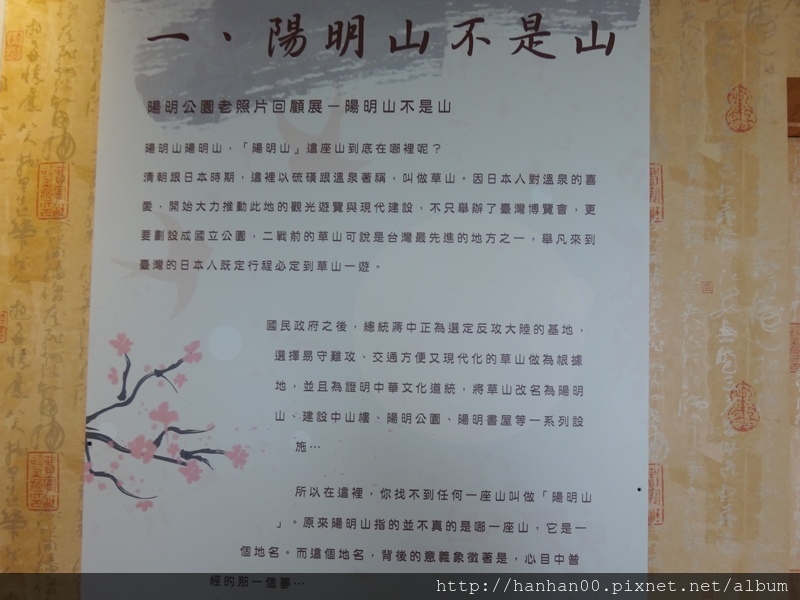 一、陽明山不是山
陽明公園老照片回顧展－陽明山不是山
陽明山陽明山，「陽明山」這座山到底在哪裡呢？
清朝跟日本時期，這裡以硫磺跟溫泉著稱，叫做草山。因日本人對溫泉的喜
愛，開始大力推動此地的觀光遊覽與現代建設，不只舉辦了臺灣博覽會，更
要劃設成國立公園，二戰前的草山可說是台灣最先進的地方之一，舉凡來到
臺灣的日本人既定行程必定到草山一遊。
國民政府之後，總統蔣中正為選定反攻大陸的基地，
選擇易守難攻、交通方便又現代化的草山做為根據
地，並且為證明中華文化道統，將草山改名為陽明
山、建設中山樓、陽明公園、陽明書屋等一系列設
施…
所以在這裡，你找不到任何一座山叫做「陽明山
」。原來陽明山指的並不真的是哪一座山，它是一
個地名。而這個地名，背後的意義象徵著是，心目中曾
經的那一個夢…
http://hanhan00.pixnet.net/album